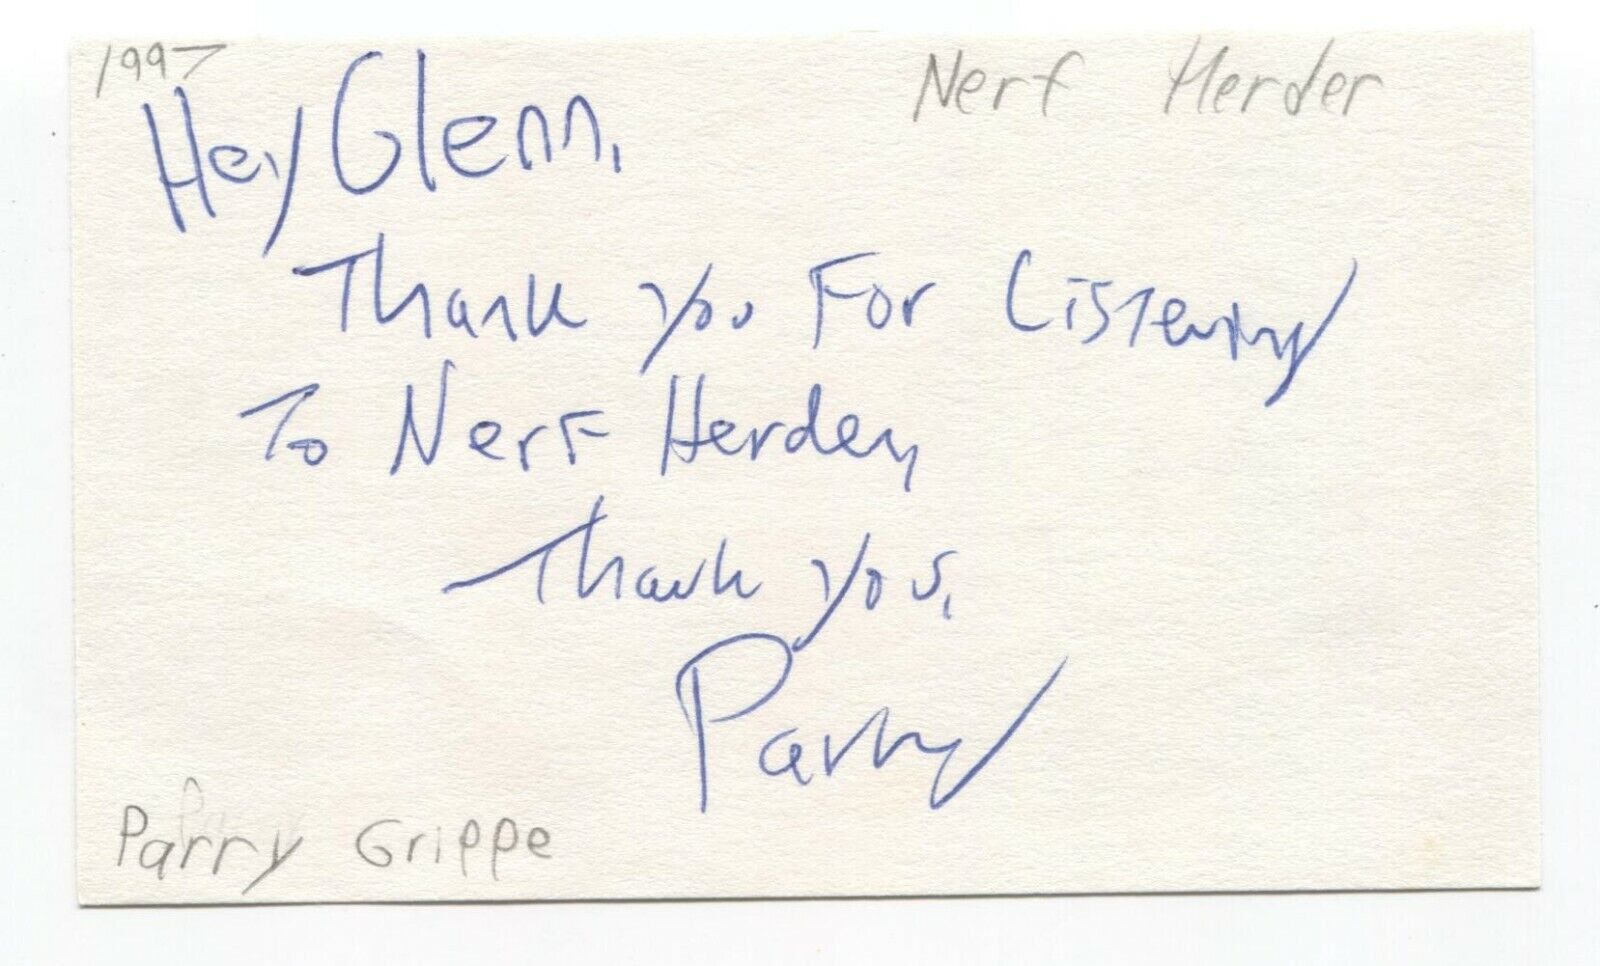 1997
Nerf Herder
Hey Glenn,
Thank you For Listening
To Nerf Herder,
Thank you,
Parry
Parry Grippe